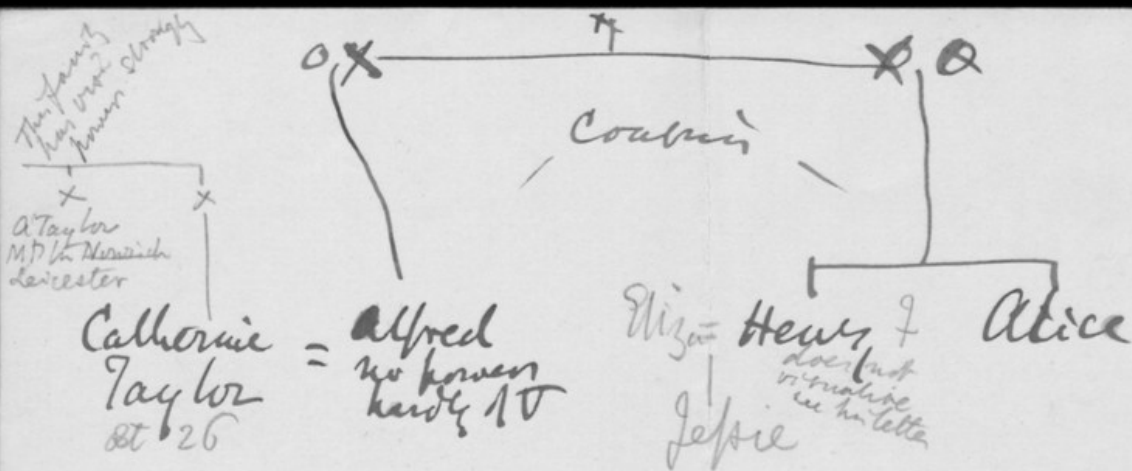 This family
has vis?
powers strongly
Cousins
A Taylor
MD in Norwich
Leicester
Catherine
Taylor
aet 26
=
Alfred
no power
hardly of V
Eliza =
Henry
does not
visualise
in his letter
&
Alice
Jessie